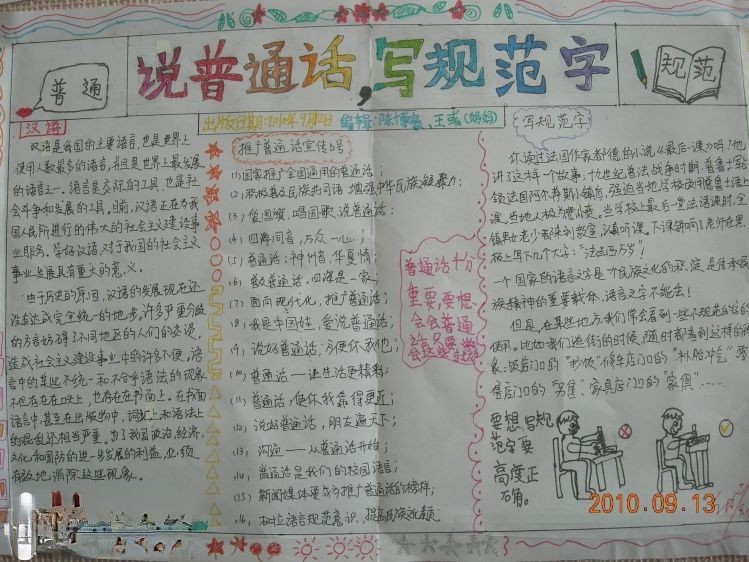 普通
说普通话,写规范字
规范
出版日期:2010年9月12日 编辑:
汉语
汉语是我国的主要语言,也是世界上
使用人数最多的语言,并且是世界上最发展
的语言之一。语言是交际的工具,也是社
会斗争和发展的工具。目前,汉语正在为我
国人民所进行的伟大的社会主义建设事
业服务。学好汉语,对于我国的社会主义
事业发展具有重大的意义。
由于历史的原因,汉语的发展现在还
没有达成完全统一的地步,许多严重分歧
的方言妨碍了不同地区的人们的交谈,
造成社会主义建设事业中的许多不便。语
言中的某些不统一和不合乎语法的现象
不但存在在口头上,也存在在书面上。在书面
语言中,甚至在出版物中,词汇上和语法上
的混乱还相当严重。为了我国政治、经济、
文化和国防的进一步发展的利益,必须
有效地消除这些现象。
推广普通话宣传标语
(1)国家推广全国通用的普通话;
(2)积极普及民族共同语 增强中华民族凝聚力;
(3)爱国旗,唱国歌,说普通话;
(4)四海同音,万众一心;
(5)普通话:神州音,华夏情;
(6)普及普通话,四海是一家;
(7)面向现代化,推广普通话;
(8)我是中国娃,爱说普通话;
(9)说好普通话,方便你我他;
(10)普通话——让生活更精彩;
(11)普通话,使你我靠得更近;
(12)说好普通话,朋友遍天下;
(13)沟通——从普通话开始;
(14)普通话是我们的校园语言;
(15)新闻媒体要成为推广普通话的榜样;
普通话十分
重要,要想
会普通
写规范字
你读过法国作家都德的小说《最后一课》吗?他
讲了这样一个故事,十九世纪普法战争时期,普鲁士
强迫当地学校改用普鲁士语上
课,当地人极为愤慨。当学校上最后一堂法语课时,全
镇男女老少都来到教室,认真听课。下课钟响了,老师在黑
板上写下几个大字:“法兰西万岁”!
一个国家的语言文字是一个民族文化的积淀,是传承民
族精神的重要载体,语言文字不能丢!
但是,在某些地方,我们常会看到一些不规范的字的
使用。比如我们逛街的时候,随时都看到这样的现
象:饭店门口的“抄饭”修车店门口的“补胎冲气”
店门口的 家具店门口的“家俱”……
要想写规
范字要
高度正
确。
2010.09.13